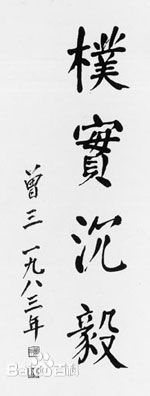 樸實沉毅
曾三 一九八三年
Bai百科